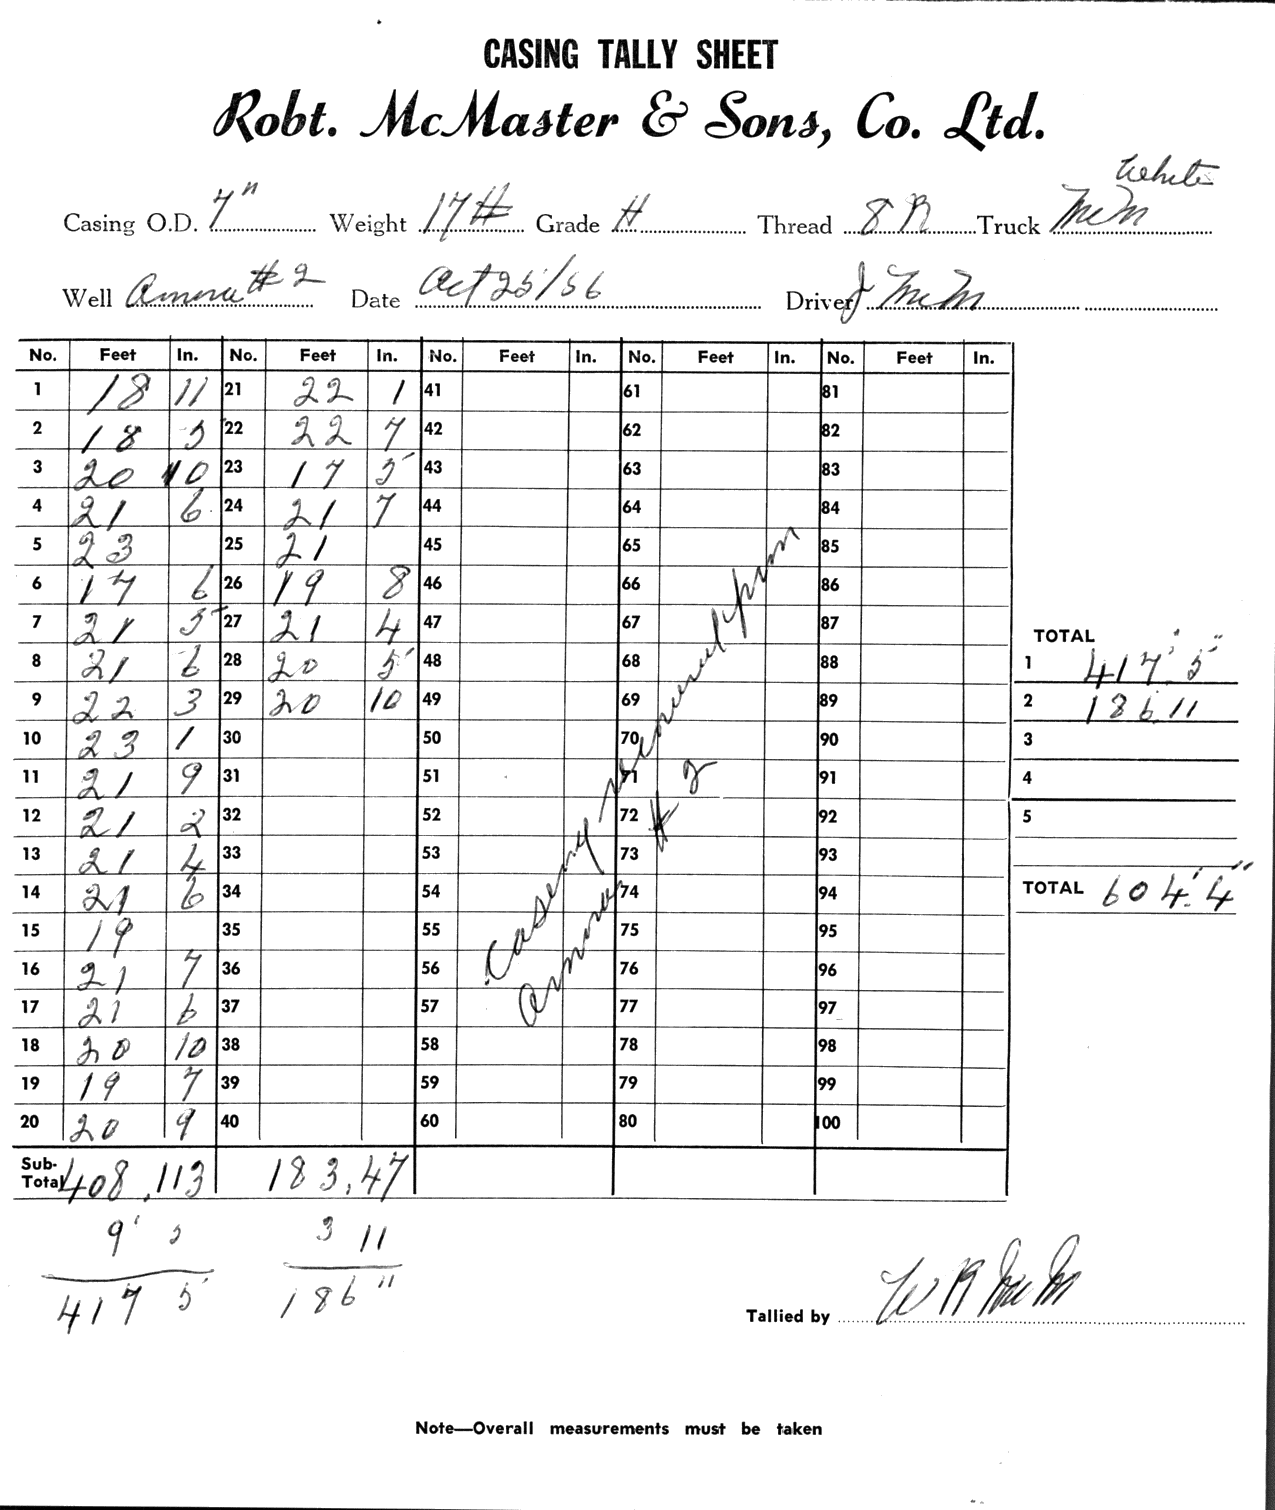 CASING TALLY SHEET
Robt. McMaster & Sons, Co. Ltd.
White
Casing O.D. 7" Weight 17# Grade H Thread 8 R Truck McM
Well #2 Date Oct 25/56 Driver J McM
No. Feet In. No. Feet In. No. Feet In. No. Feet In. No. Feet In.
1 18 11 21 22 1 41 61 81
2 18 5 22 22 7 42 62 82
3 20 10 23 17 5 43 63 83
4 21 6 24 21 7 44 64 84
5 23 25 21 45 65 85
6 17 6 26 19 8 46 66 86
7 21 5 27 21 4 47 67 87
8 21 6 28 20 5 48 68 88
9 22 3 29 20 10 49 69 89
10 23 1 30 50 70 90
11 21 9 31 51 71 91
12 21 2 32 52 72 92
13 21 4 33 53 73 93
14 21 6 34 54 74 94
15 19 35 55 75 95
16 21 7 36 56 76 96
17 21 6 37 57 77 97
18 20 10 38 58 78 98
19 19 7 39 59 79 99
20 20 9 40 60 80 100
Casing removed from
#2
TOTAL
1 417' 5"
2 186 11
3
4
5
TOTAL 604' 4"
Sub-Total 408, 113 183, 47
9' 5 3 11
417 5 186 11
Tallied by W R McM
Note—Overall measurements must be taken